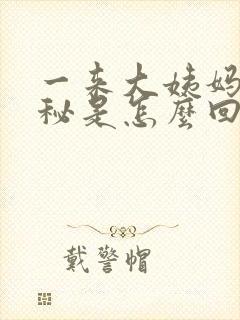 一来大姨妈
秘是怎麼回
戴警帽